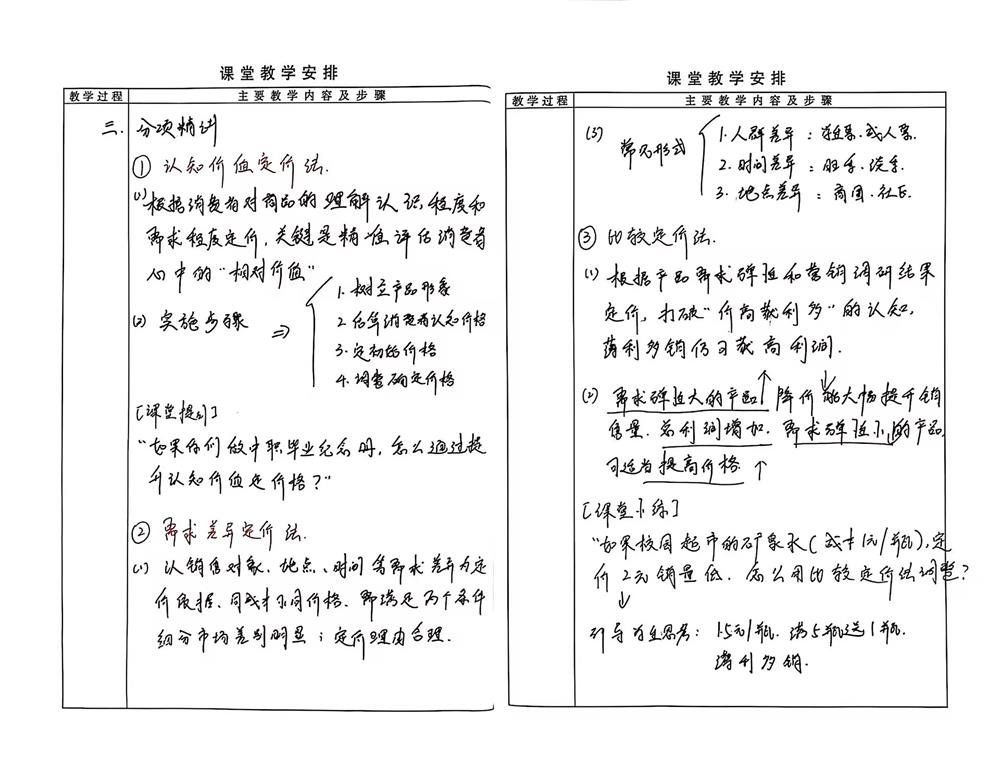 课堂教学安排
教学过程
主要教学内容及步骤
三. 分项精讲
① 认知价值定价法.
(1) 根据消费者对商品的理解认识程度和
需求程度定价, 关键是精准评估消费者
心中的“相对价值”
(2) 实施步骤 ⇒
1. 树立产品形象
2. 估算消费者认知价格
3. 定初始价格
4. 调整确定价格
[课堂提问]
“如果你们做中职毕业纪念册, 怎么通过提
升认知价值定价格?”
② 需求差异定价法.
(1) 以销售对象、地点、时间等需求差异为定
价依据、同成本不同价格、需满足两个条件
细分市场差别明显; 定价理由合理.
课堂教学安排
教学过程
主要教学内容及步骤
(3) 常见形式
1. 人群差异: 学生票.成人票.
2. 时间差异: 旺季.淡季.
3. 地点差异: 商圈.社区.
③ 比较定价法.
(1) 根据产品需求弹性和营销调研结果
定价, 打破“价高获利多”的认知,
薄利多销仍可获高利润.
(2) 需求弹性大的产品↑ 降价↓能大幅提升销
售量. 总利润增加. 需求弹性小的产品
可适当提高价格 ↑
[课堂小练]
“如果校园超市的矿泉水(成本1元/瓶), 定
价2元销量低. 怎么用比较定价法调整?
↓
引导为主思考: 1.5元/瓶. 满5瓶送1瓶.
薄利多销.